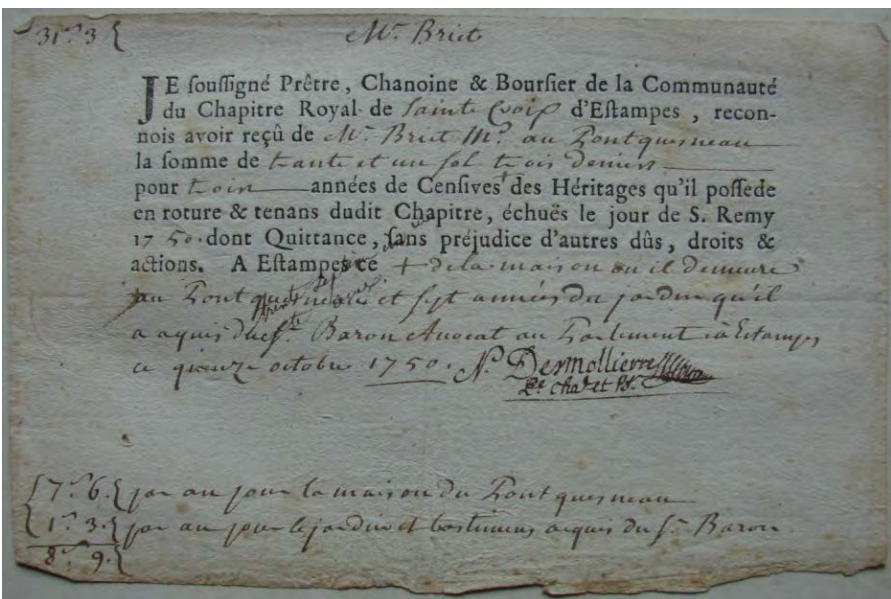 31ˢ 3 {
Mr. Briet
JE souſſigné Prêtre, Chanoine & Bourſier de la Communauté
du Chapitre Royal de Sainte Croix d'Eſtampes, recon-
nois avoir reçû de Mr. Briet Md. au Pontquesneau
la ſomme de trante et un sol trois deniers
pour trois années de Cenſives + des Héritages qu'il poſſede
en roture & tenans dudit Chapitre, échuës le jour de S. Remy
1750. dont Quittance, ſans préjudice d'autres dûs, droits &
actions. A Eſtampes ce + de la maison ou il demeure
au Pontquesneau et sept années du jardin qu'il
a aquis du Sr. Baron Avocat au Parlement à Estampes
ce quinze octobre 1750. N. Desmollierre
Pe. Cha. et Bs.
{ 7ˢ 6. { par an pour la maison du Pontquesneau
{ 1ˢ 3. { par an pour le jardin et bastimens aquis du Sr. Baron
8ˢ 9. {